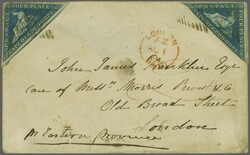 FOUR PENCE
POSTAGE
LONDON
John James Franklin Esqr
care of Messrs Morris Prevost & Co.
Old Broad Street
London
pr Eastern Province